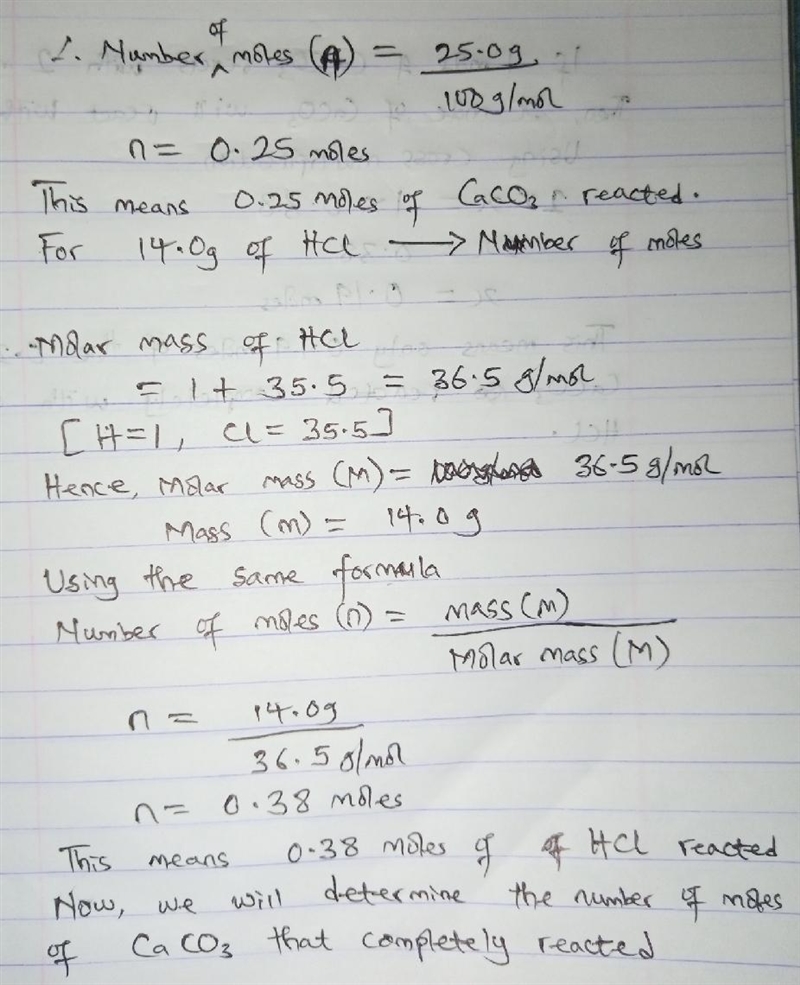 ∴ Number of moles (n) = 25.0g / 100g/mol
n = 0.25 moles
This means 0.25 moles of CaCO3 reacted.
For 14.0g of HCl ⟶ Number of moles
Molar mass of HCl
= 1 + 35.5 = 36.5 g/mol
[H=1, Cl = 35.5]
Hence, Molar mass (M) = 36.5 g/mol
Mass (m) = 14.0 g
Using the same formula
Number of moles (n) = Mass (m) / Molar mass (M)
n = 14.0g / 36.5 g/mol
n = 0.38 moles
This means 0.38 moles of of HCl reacted
Now, we will determine the number of moles
of CaCO3 that completely reacted